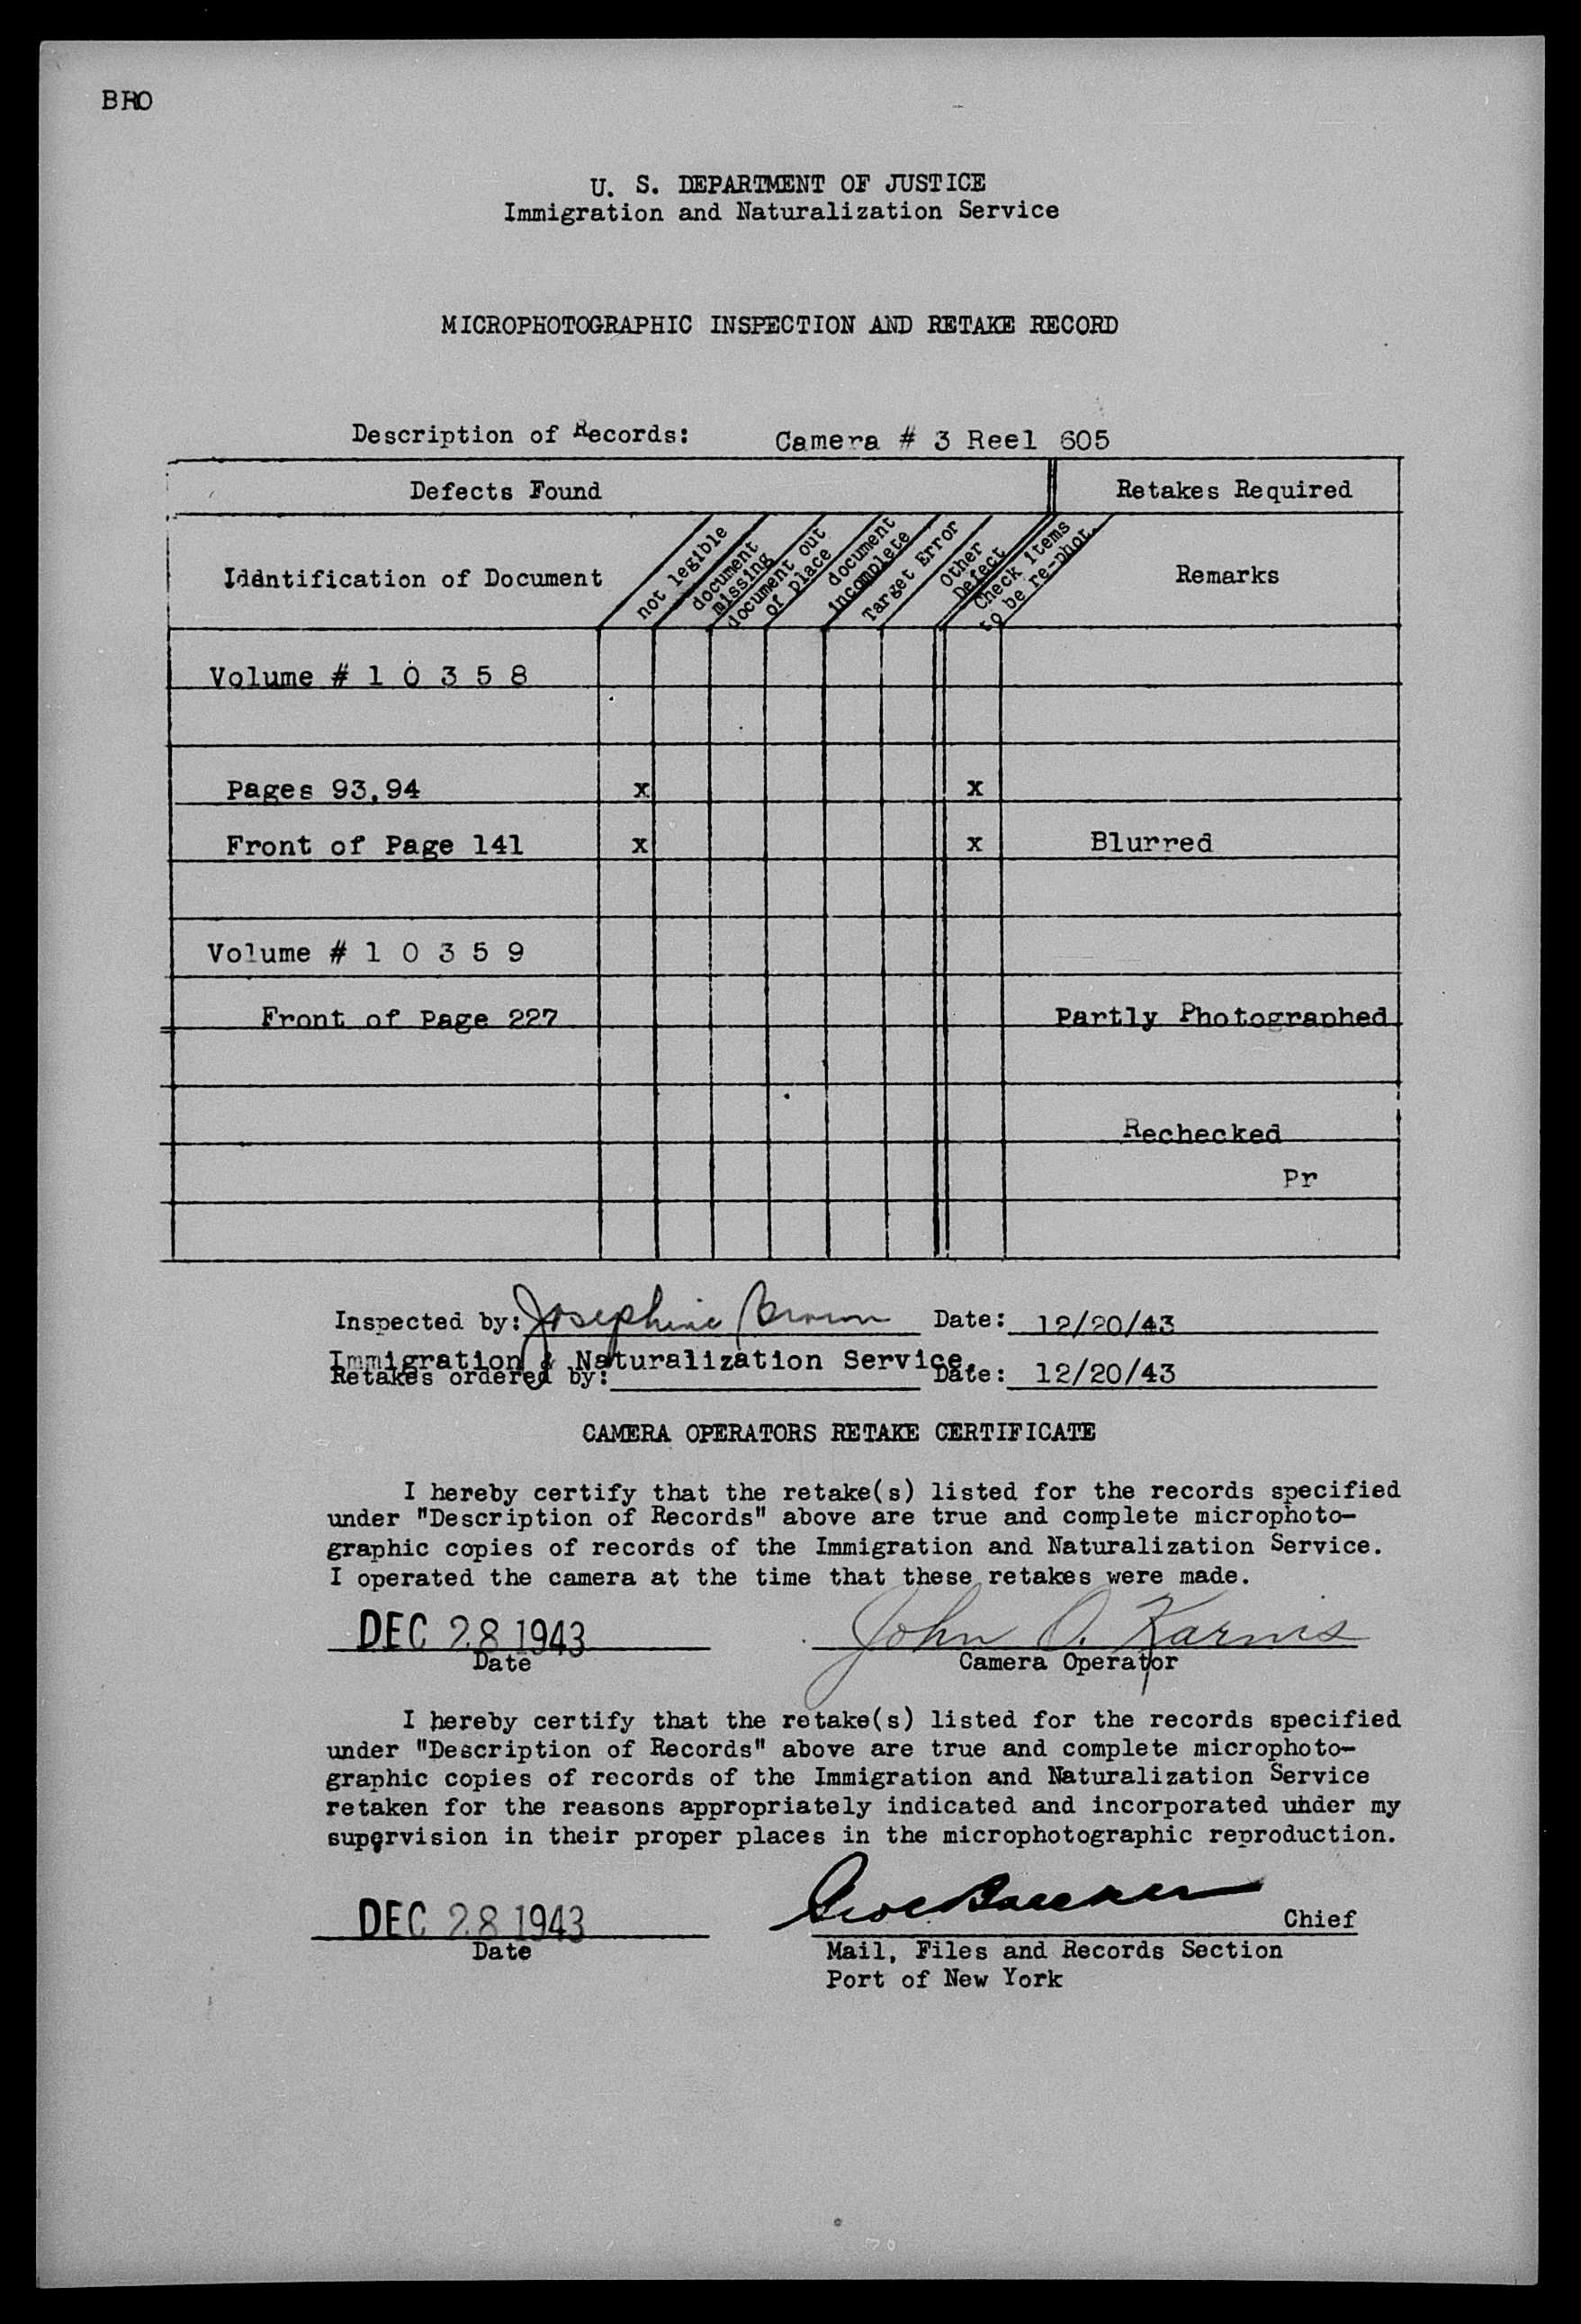 BRO
U. S. DEPARTMENT OF JUSTICE
Immigration and Naturalization Service
MICROPHOTOGRAPHIC INSPECTION AND RETAKE RECORD
Description of Records: Camera # 3 Reel 605
Defects Found Retakes Required
Identification of Document
not legible
document missing
document out of place
document incomplete
Target Error
Other Defect
Check items to be re-phot.
Remarks
Volume # 1 0 3 5 8
Pages 93,94 x x
Front of Page 141 x x Blurred
Volume # 1 0 3 5 9
Front of Page 227 Partly Photographed
Rechecked
Pr
Inspected by: Josephine Brown Date: 12/20/43
Immigration & Naturalization Service.
Retakes ordered by: Date: 12/20/43
CAMERA OPERATORS RETAKE CERTIFICATE
I hereby certify that the retake(s) listed for the records specified
under "Description of Records" above are true and complete microphoto-
graphic copies of records of the Immigration and Naturalization Service.
I operated the camera at the time that these retakes were made.
DEC 28 1943 John O. Karnis
Date Camera Operator
I hereby certify that the retake(s) listed for the records specified
under "Description of Records" above are true and complete microphoto-
graphic copies of records of the Immigration and Naturalization Service
retaken for the reasons appropriately indicated and incorporated under my
supervision in their proper places in the microphotographic reproduction.
DEC 28 1943 Chief
Date Mail, Files and Records Section
Port of New York